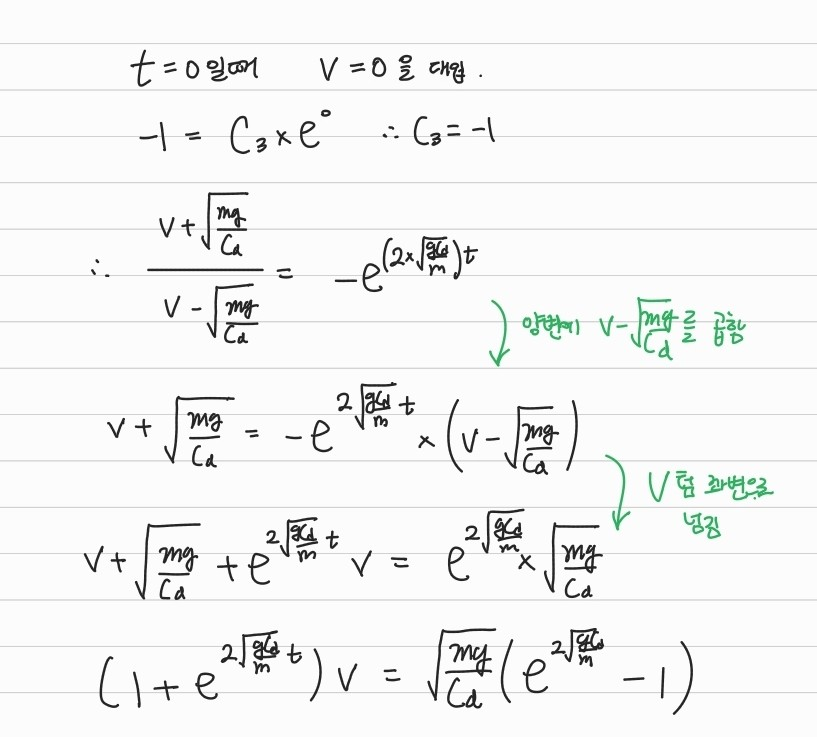 t = 0 일때 V = 0 을 대입.
-1 = C₃ × e⁰ ∴ C₃ = -1
∴ (V + √(mg/Cd)) / (V - √(mg/Cd)) = -e^((2×√(gCd/m))t)
양변에 V - √(mg/Cd)를 곱함
V + √(mg/Cd) = -e^(2√(gCd/m) t) × (V - √(mg/Cd))
V텀 좌변으로
넘김
V + √(mg/Cd) + e^(2√(gCd/m) t) V = e^(2√(gCd/m)) × √(mg/Cd)
(1 + e^(2√(gCd/m) t)) V = √(mg/Cd) (e^(2√(gCd/m)) - 1)